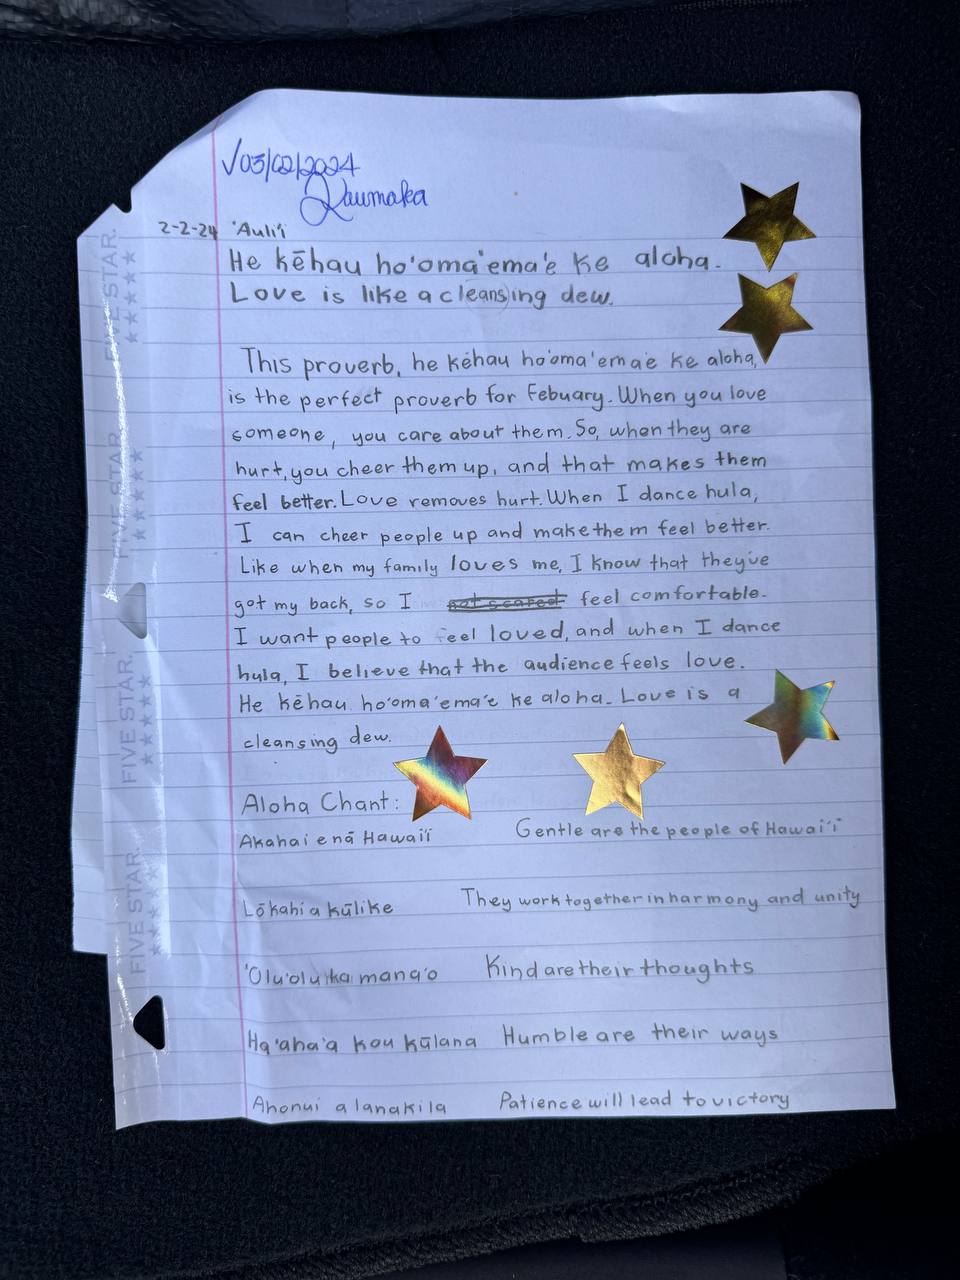 √03/02/2024
Kaumaka
2-2-24 'Auli'i
He kēhau ho'oma'ema'e ke aloha.
Love is like a cleansing dew.
This proverb, he kēhau ho'oma'ema'e ke aloha,
is the perfect proverb for Febuary. When you love
someone, you care about them. So, when they are
hurt, you cheer them up, and that makes them
feel better. Love removes hurt. When I dance hula,
I can cheer people up and make them feel better.
Like when my family loves me, I know that they've
got my back, so I not scared feel comfortable.
I want people to feel loved, and when I dance
hula, I believe that the audience feels love.
He kēhau ho'oma'ema'e ke aloha. Love is a
cleansing dew.
Aloha Chant:
Akahai e nā Hawai'i Gentle are the people of Hawai'i
Lōkahi a kūlike They work together in harmony and unity
'Olu'olu ka mana'o Kind are their thoughts
Ha'aha'a kou kūlana Humble are their ways
Ahonui a lanakila Patience will lead to victory
FIVE STAR.
FIVE STAR.
FIVE STAR.
FIVE STAR.